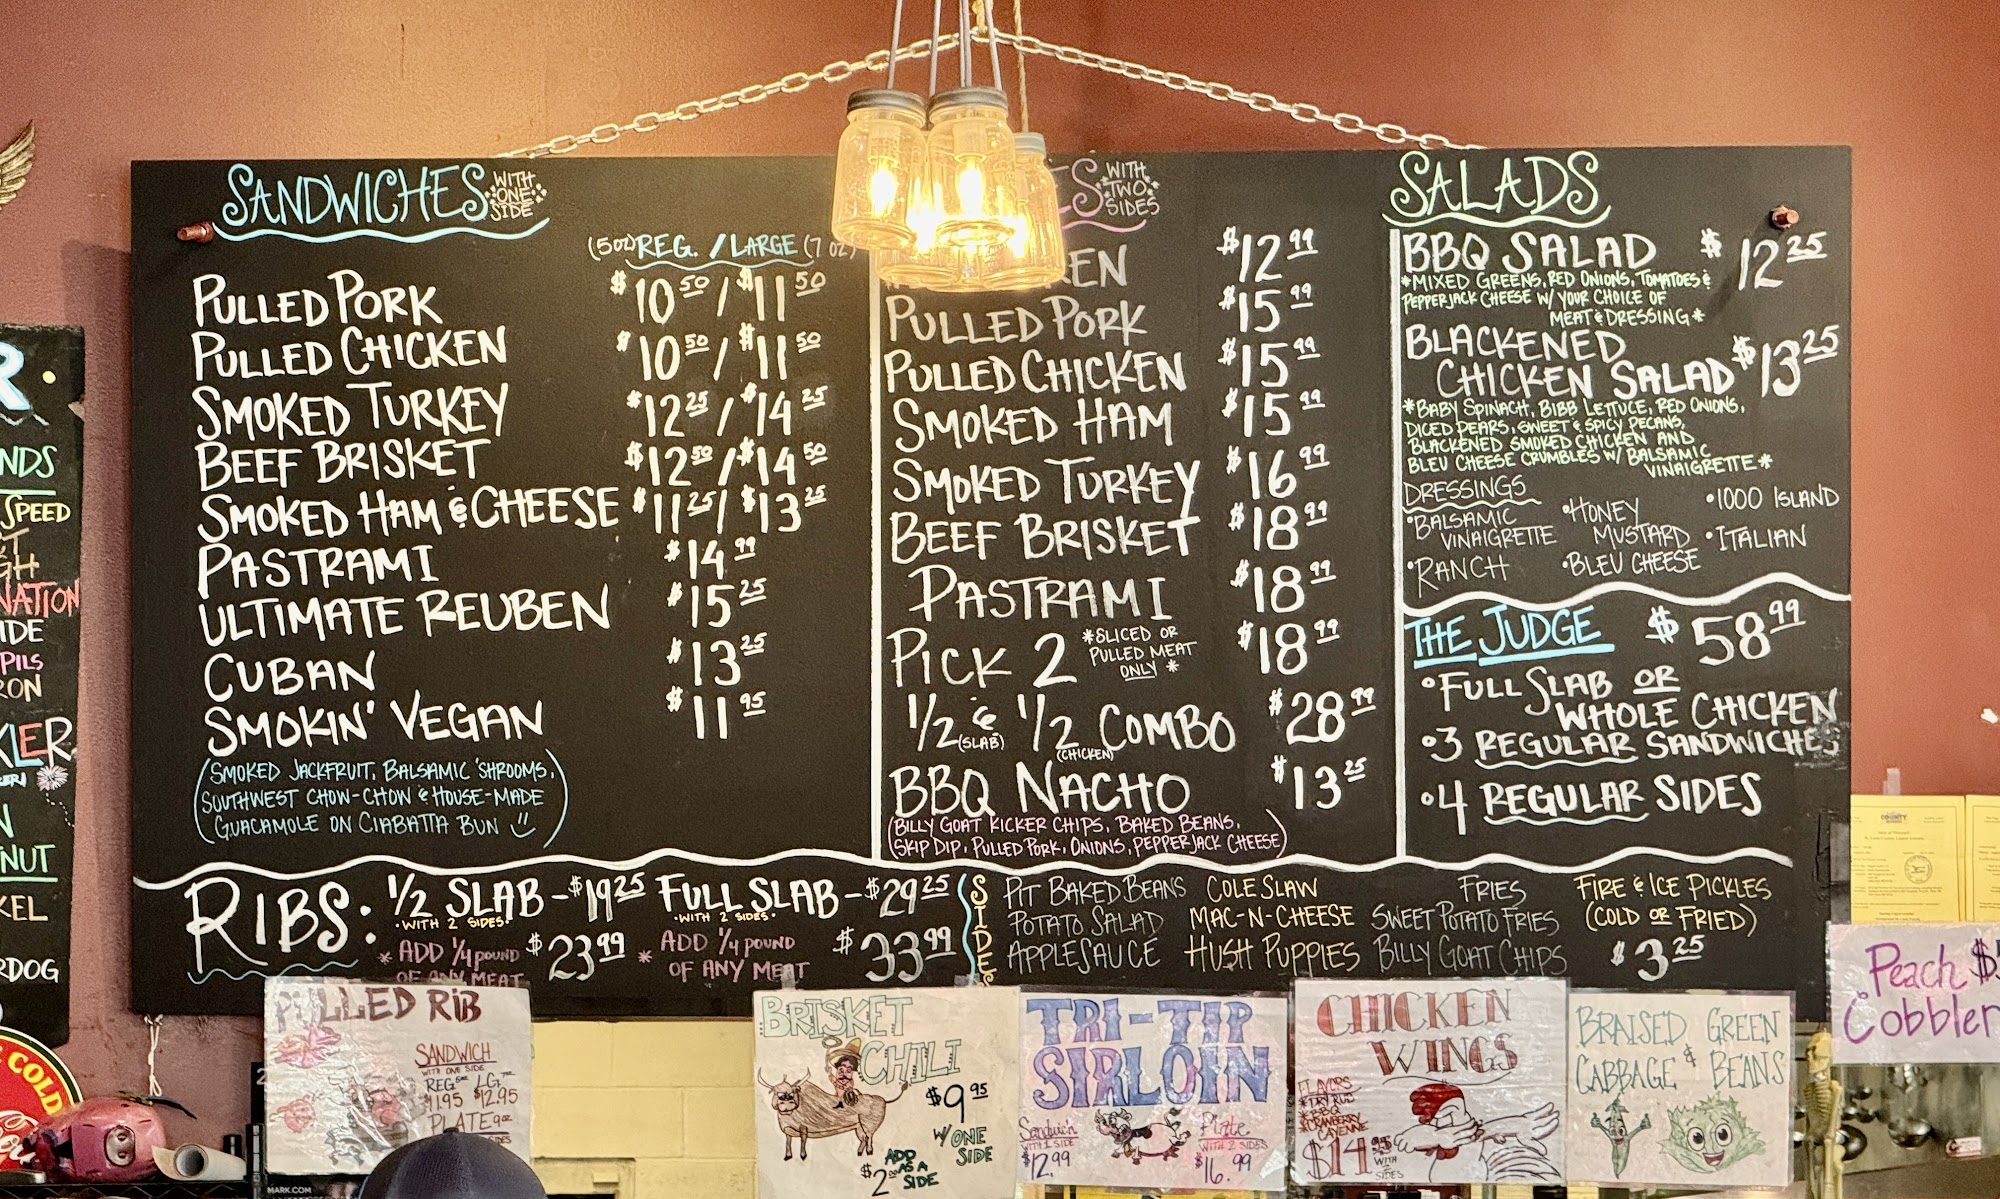 SANDWICHES WITH ONE SIDE
(5 OZ) REG. / LARGE (7 OZ)
PULLED PORK $10 50 / $11 50
PULLED CHICKEN $10 50 / $11 50
SMOKED TURKEY $12 25 / $14 25
BEEF BRISKET $12 50 / $14 50
SMOKED HAM & CHEESE $11 25 / $13 25
PASTRAMI $14 99
ULTIMATE REUBEN $15 25
CUBAN $13 25
SMOKIN' VEGAN $11 95
(SMOKED JACKFRUIT, BALSAMIC 'SHROOMS,
SOUTHWEST CHOW-CHOW & HOUSE-MADE
GUACAMOLE ON CIABATTA BUN)
ES WITH TWO SIDES
KEN $12 99
PULLED PORK $15 99
PULLED CHICKEN $15 99
SMOKED HAM $15 99
SMOKED TURKEY $16 99
BEEF BRISKET $18 99
PASTRAMI $18 99
PICK 2 *SLICED OR PULLED MEAT ONLY* $18 99
1/2 (SLAB) & 1/2 (CHICKEN) COMBO $28 99
BBQ NACHO $13 25
(BILLY GOAT KICKER CHIPS, BAKED BEANS,
SKIP DIP, PULLED PORK, ONIONS, PEPPERJACK CHEESE)
SALADS
BBQ SALAD $12 25
*MIXED GREENS, RED ONIONS, TOMATOES &
PEPPERJACK CHEESE W/ YOUR CHOICE OF
MEAT & DRESSING*
BLACKENED
CHICKEN SALAD $13 25
*BABY SPINACH, BIBB LETTUCE, RED ONIONS,
DICED PEARS, SWEET & SPICY PECANS,
BLACKENED SMOKED CHICKEN AND
BLEU CHEESE CRUMBLES W/ BALSAMIC
VINAIGRETTE*
DRESSINGS
•BALSAMIC VINAIGRETTE •HONEY MUSTARD •1000 ISLAND
•RANCH •BLEU CHEESE •ITALIAN
THE JUDGE $58 99
•FULL SLAB OR
WHOLE CHICKEN
•3 REGULAR SANDWICHES
•4 REGULAR SIDES
RIBS: 1/2 SLAB - $19 25 FULL SLAB - $29 25
•WITH 2 SIDES• •WITH 2 SIDES•
* ADD 1/4 POUND OF ANY MEAT $23 99 * ADD 1/4 POUND OF ANY MEAT $33 99
SIDES
PIT BAKED BEANS COLE SLAW FRIES FIRE & ICE PICKLES
POTATO SALAD MAC-N-CHEESE SWEET POTATO FRIES (COLD OR FRIED)
APPLESAUCE HUSH PUPPIES BILLY GOAT CHIPS $3 25
PULLED RIB
SANDWICH
WITH ONE SIDE
REG 5oz LG 7oz
$11.95 $12.95
PLATE 9oz
BRISKET
CHILI
$9 95
W/ ONE
SIDE
ADD
AS A
SIDE
$2
TRI-TIP
SIRLOIN
Sandwich
WITH 1 SIDE
$12.99
Plate
WITH 2 SIDES
$16.99
CHICKEN
WINGS
FLAVORS
•DRY RUB
•BBQ
$14 95
WITH
SIDES
BRAISED GREEN
CABBAGE & BEANS
Peach $
Cobbler
R
NDS
SPEED
GH
NATION
IDE
PILS
RON
KER
N
NUT
KEL
RDOG
COLD
COUNTY
MARK.COM